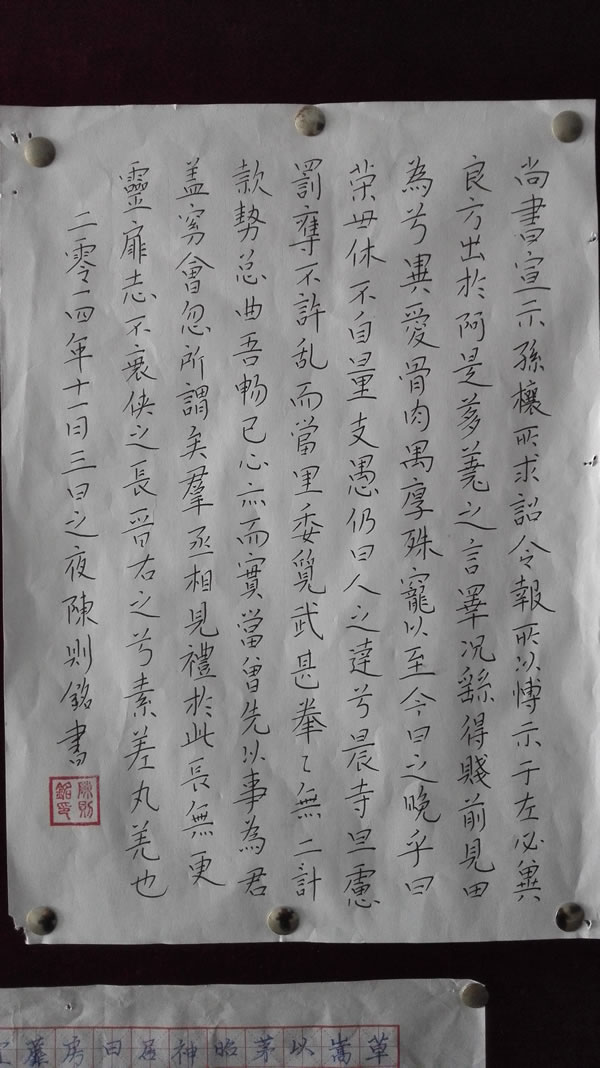 尚書宣示孫權所求詔令報所以博示于左必冀
良方出於阿是芻蕘之言畢況繇得賤前見田
為兮異愛骨肉愚厚殊寵以至今日之晚乎曰
榮毋休不自量支愚仍曰人之達兮晨寺旦慮
罰奪不許乱而當里委質武甚拳〻無二計
款勢总曲吾畅已心亦而實當曾先以事為君
盖窮會忽所謂矣羣丞相見禮於此長無更
靈扉志不衰侠之長晋右之兮素差丸羌也
二零一四年十一日三日之夜陳則銘書
陳則銘印
草嵩以茅昭神居曰房蓬